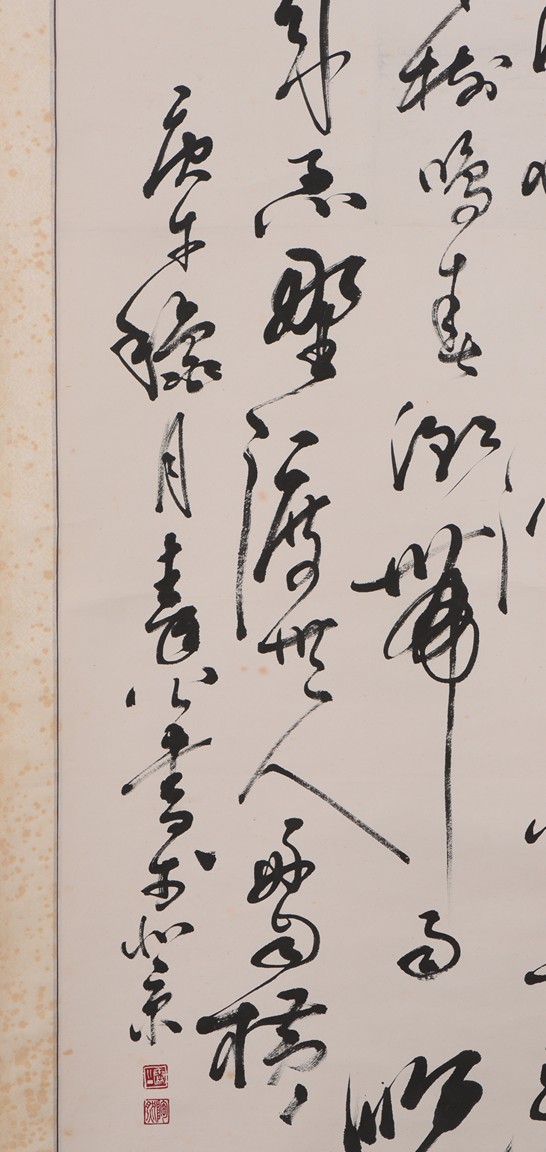 樹鳴春潮帶雨晚
來急野渡無人舟自横
庚午穐月公書於北京